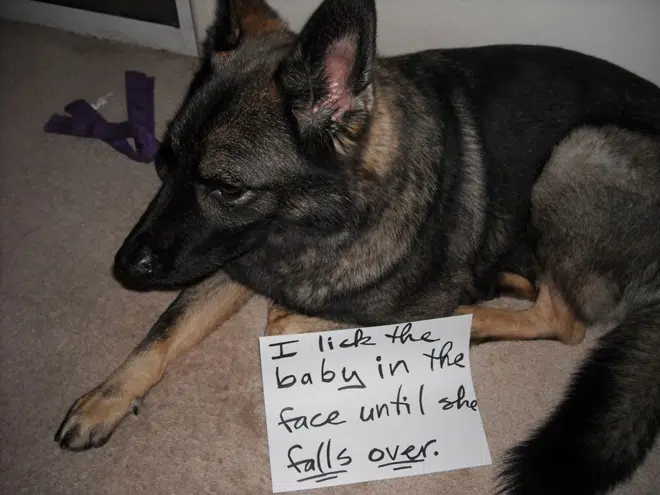 I lick the
baby in the
face until she
falls over.